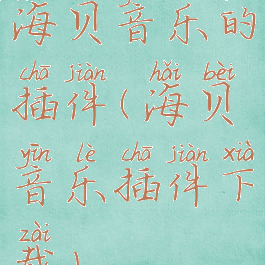 海贝音乐的
chā jiàn hǎi bèi
插件(海贝
yīn lè chā jiàn xià
音乐插件下
zài
载)